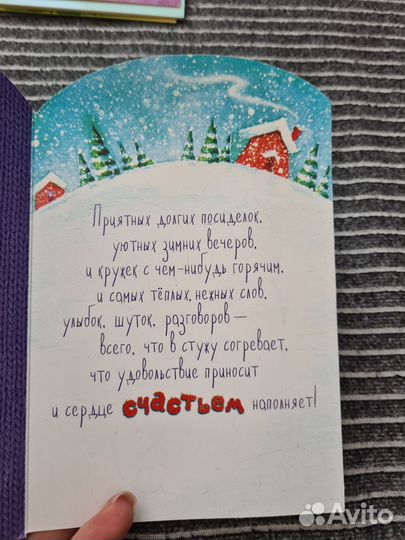 Приятных долгих посиделок,
уютных зимних вечеров,
и кружек с чем-нибудь горячим,
и самых тёплых, нежных слов,
улыбок, шуток, разговоров —
всего, что в стужу согревает,
что удовольствие приносит
и сердце счастьем наполняет!
Avito